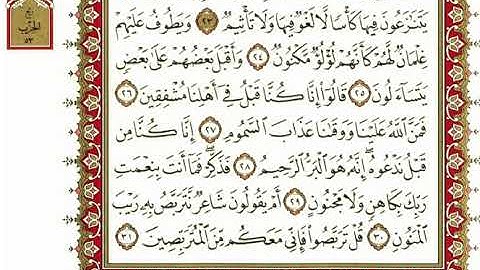 ربع
الحزب
٥٣
يَتَنَٰزَعُونَ فِيهَا كَأْسًا لَّا لَغْوٌ فِيهَا وَلَا تَأْثِيمٌ ٢٣ وَيَطُوفُ عَلَيْهِمْ
غِلْمَانٌ لَّهُمْ كَأَنَّهُمْ لُؤْلُؤٌ مَّكْنُونٌ ٢٤ وَأَقْبَلَ بَعْضُهُمْ عَلَىٰ بَعْضٍ
يَتَسَآءَلُونَ ٢٥ قَالُوٓا۟ إِنَّا كُنَّا قَبْلُ فِىٓ أَهْلِنَا مُشْفِقِينَ ٢٦
فَمَنَّ ٱللَّهُ عَلَيْنَا وَوَقَىٰنَا عَذَابَ ٱلسَّمُومِ ٢٧ إِنَّا كُنَّا مِن
قَبْلُ نَدْعُوهُ ۖ إِنَّهُۥ هُوَ ٱلْبَرُّ ٱلرَّحِيمُ ٢٨ فَذَكِّرْ فَمَآ أَنتَ بِنِعْمَتِ
رَبِّكَ بِكَاهِنٍ وَلَا مَجْنُونٍ ٢٩ أَمْ يَقُولُونَ شَاعِرٌ نَّتَرَبَّصُ بِهِۦ رَيْبَ
ٱلْمَنُونِ ٣٠ قُلْ تَرَبَّصُوا۟ فَإِنِّى مَعَكُم مِّنَ ٱلْمُتَرَبِّصِينَ ٣١